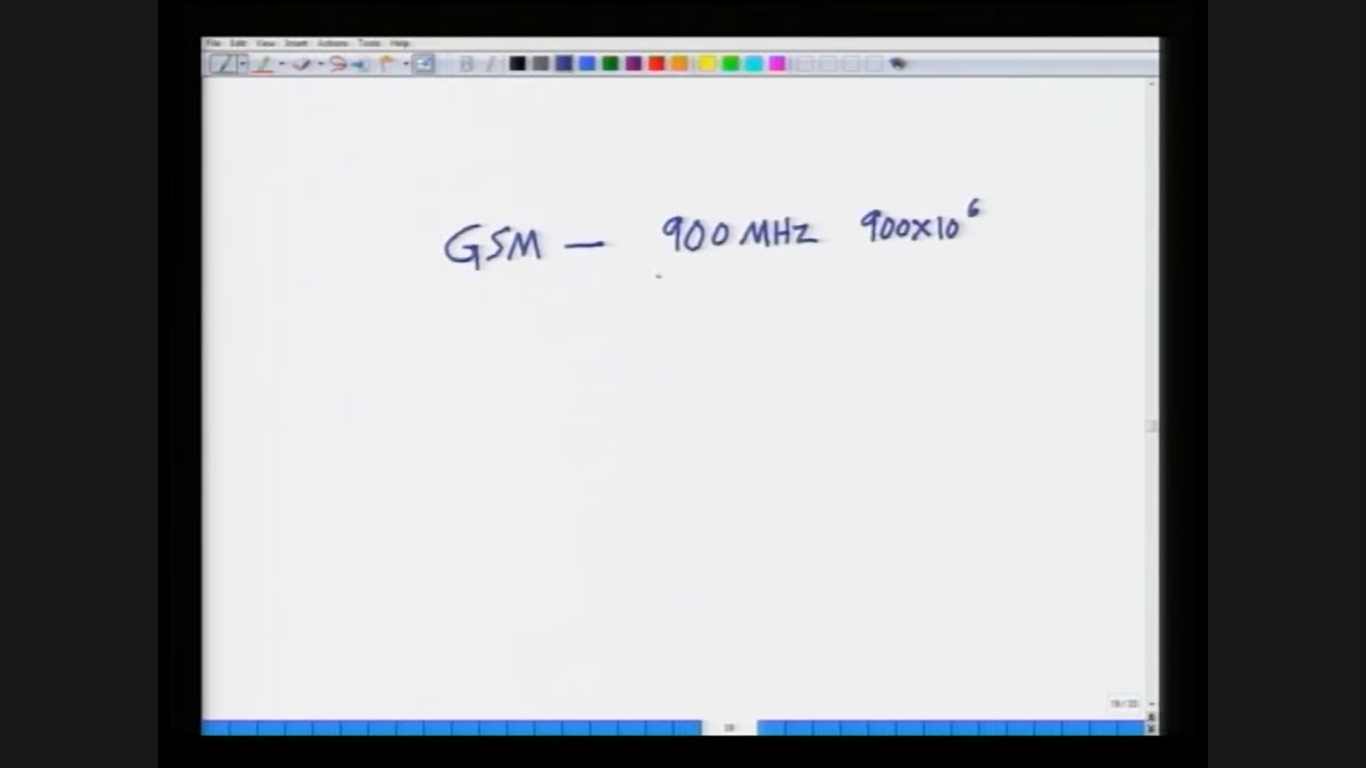 File Edit View Insert Actions Tools Help
GSM — 900 MHz 900x10⁶